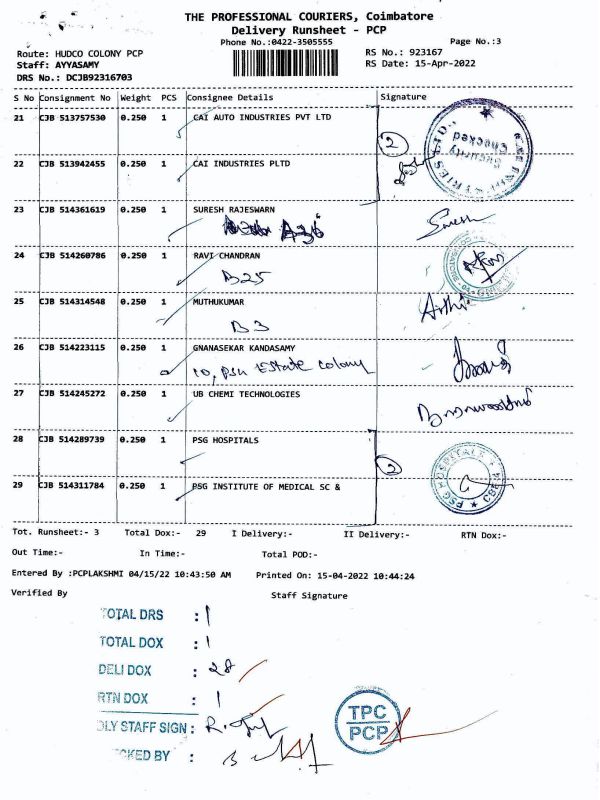 THE PROFESSIONAL COURIERS, Coimbatore
Delivery Runsheet - PCP
Phone No.:0422-3505555
Page No.:3
Route: HUDCO COLONY PCP
RS No.: 923167
Staff: AYYASAMY
RS Date: 15-Apr-2022
DRS No.: DCJB92316703
S No Consignment No Weight PCS Consignee Details Signature
21 CJB 513757530 0.250 1 CAI AUTO INDUSTRIES PVT LTD
2
Security
Checked
22 CJB 513942455 0.250 1 CAI INDUSTRIES PLTD
23 CJB 514361619 0.250 1 SURESH RAJESWARN
Suresh
24 CJB 514260786 0.250 1 RAVI CHANDRAN
B25
25 CJB 514314548 0.250 1 MUTHUKUMAR
B3
26 CJB 514223115 0.250 1 GNANASEKAR KANDASAMY
10, PSG Estate Colony
27 CJB 514245272 0.250 1 UB CHEMI TECHNOLOGIES
28 CJB 514289739 0.250 1 PSG HOSPITALS
2
PSG HOSPITALS
29 CJB 514311784 0.250 1 PSG INSTITUTE OF MEDICAL SC &
Tot. Runsheet:- 3 Total Dox:- 29 I Delivery:- II Delivery:- RTN Dox:-
Out Time:- In Time:- Total POD:-
Entered By :PCPLAKSHMI 04/15/22 10:43:50 AM Printed On: 15-04-2022 10:44:24
Verified By Staff Signature
TOTAL DRS : 1
TOTAL DOX : 1
DELI DOX : 28
RTN DOX : 1
DLY STAFF SIGN :
CKED BY :
TPC
PCP